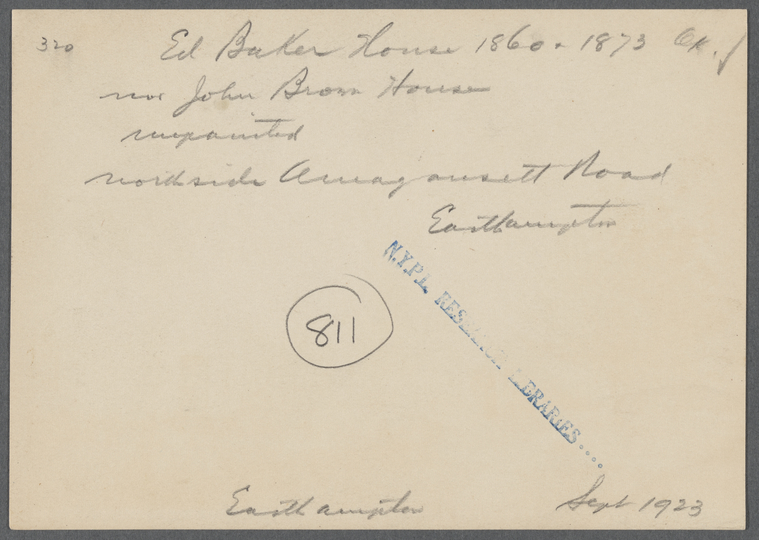 320
Ed Baker House 1860 - 1873 OK. √
nor John Brown House
unpainted
northside Amagansett Road
Easthampton
N.Y.P.L. RESEARCH LIBRARIES....
811
Easthampton Sept 1923